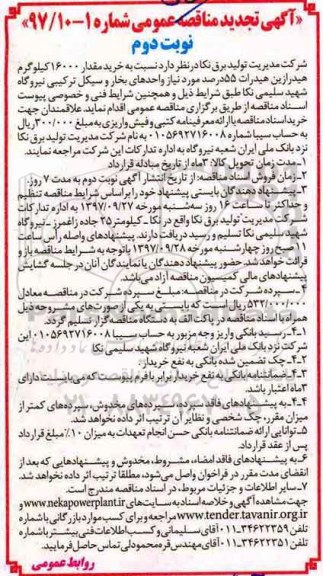 «آگهی تجدید مناقصه عمومی شماره ۱-۹۷/۱۰»
نوبت دوم
شرکت مدیریت تولید برق نکا در نظر دارد نسبت به خرید مقدار ۱۶۰۰۰ کیلوگرم
هیدرازین هیدرات ۵۵ درصد مورد نیاز واحدهای بخار و سیکل ترکیبی نیروگاه
شهید سلیمی نکا طبق شرایط ذیل و همچنین شرایط فنی و خصوصی پیوست
اسناد مناقصه از طریق برگزاری مناقصه عمومی اقدام نماید. علاقمندان جهت
خرید اسناد مناقصه با ارائه معرفینامه کتبی و فیش واریزی به مبلغ ۳۰۰/۰۰۰ ریال
به حساب سیبا شماره ۰۱۰۵۶۹۲۷۱۶۰۰۸ به نام شرکت مدیریت تولید برق نکا
نزد بانک ملی ایران شعبه نیروگاه به اداره تدارکات این شرکت مراجعه نمایند.
۱- مدت زمان تحویل کالا: ۳ ماه از تاریخ مبادله قرارداد
۲- زمان فروش اسناد مناقصه: از تاریخ انتشار آگهی نوبت دوم به مدت ۷ روز.
۳- پیشنهاد دهندگان بایستی پیشنهاد خود را بر اساس شرایط مناقصه تنظیم
و حداکثر تا ساعت ۱۶ روز سه‌شنبه مورخه ۱۳۹۷/۰۹/۲۷ به اداره تدارکات
شرکت مدیریت تولید برق نکا واقع در نکا ـ کیلومتر ۲۵ جاده زاغمرز ـ نیروگاه
شهید سلیمی نکا تسلیم و رسید دریافت دارند. پیشنهادهای واصله رأس ساعت
صبح روز چهارشنبه مورخه ۱۳۹۷/۰۹/۲۸ با توجه به شرایط مناقصه باز و
قرائت خواهد شد. حضور پیشنهاد دهندگان یا نمایندگان آنان در جلسه گشایش
پیشنهادهای مالی کمیسیون مناقصه آزاد می‌باشد.
۴- سپرده شرکت در مناقصه: مبلغ سپرده شرکت در مناقصه معادل
۵۳۲/۰۰۰/۰۰۰ ریال است که بایستی به یکی از صورت‌های مشروحه ذیل
همراه با اسناد مناقصه در پاکت الف به دستگاه مناقصه گزار تسلیم گردد.
۴-۱- رسید بانکی واریز وجه مزبور به حساب سیبا ۰۱۰۵۶۹۲۷۱۶۰۰۸ این
شرکت نزد بانک ملی ایران شعبه نیروگاه شهید سلیمی نکا
۴-۲- چک تضمین شده بانکی به نفع خریدار.
۴-۳- ضمانتنامه بانکی به نفع خریدار برابر با فرم پیوست که می‌بایست دارای
۳ ماه اعتبار باشد.
۴-۴- به پیشنهادهای فاقد سپرده، سپرده‌های مخدوش، سپرده‌های کمتر از
میزان مقرر، چک شخصی و نظایر آن ترتیب اثر داده نخواهد شد.
۵- توانایی ارائه ضمانتنامه بانکی حسن انجام تعهدات به میزان ۱۰٪ مبلغ قرارداد
پس از عقد قرارداد.
۶- به پیشنهادهای فاقد امضاء، مشروط، مخدوش و پیشنهادهایی که بعد از
انقضای مدت مقرر در فراخوان واصل می‌شود، مطلقا ترتیب اثر داده نخواهد شد.
۷- سایر اطلاعات و جزئیات مربوط، در اسناد مناقصه مندرج است.
جهت مشاهده آگهی و خلاصه اسناد به سایت‌های www.nekapowerplant.ir و
www.tender.tavanir.org.ir مراجعه و برای کسب موارد بازرگانی با شماره
تلفن ۳۴۶۲۲۳۵۹-۰۱۱ آقای سلیمانی و کسب اطلاعات فنی بیشتر با شماره
تلفن ۳۴۶۲۲۳۵۱-۰۱۱ آقای مهندس قره محمودلی تماس حاصل فرمایید.
روابط عمومی